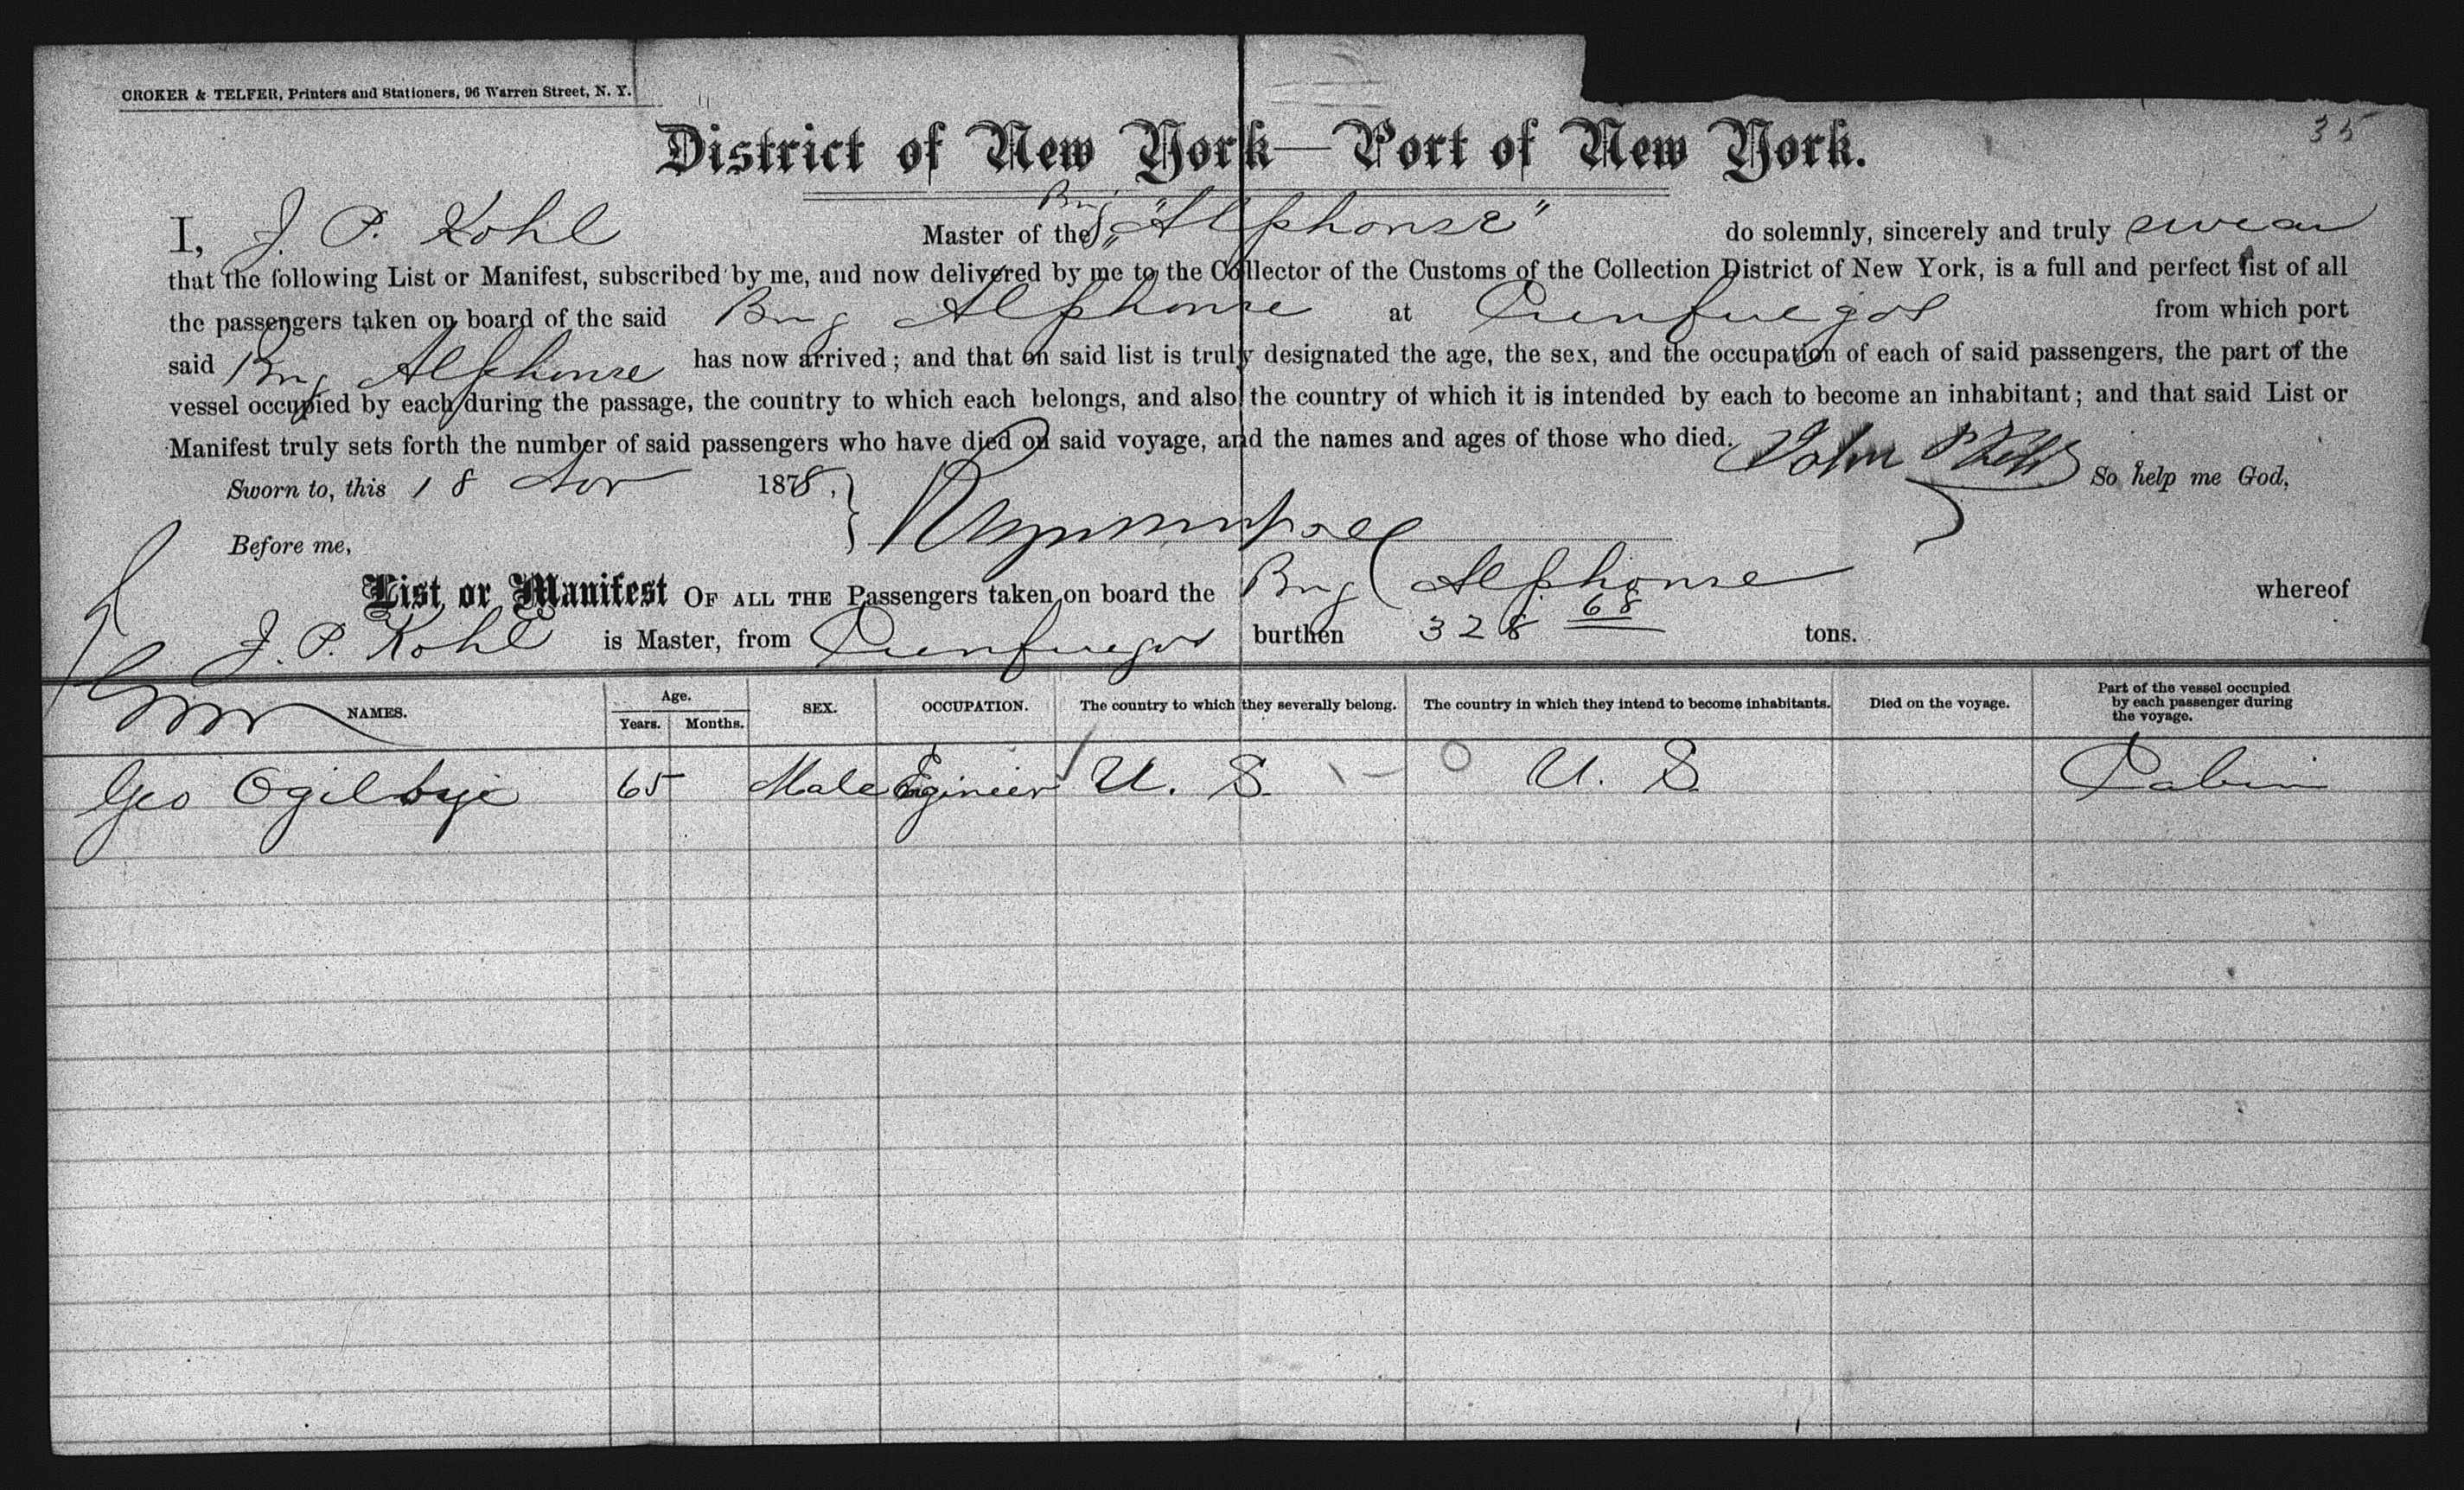 CROKER & TELFER, Printers and Stationers, 96 Warren Street, N. Y.
35
District of New York—Port of New York.
I, J. P. Kohl Master of the Brig "Alphonse" do solemnly, sincerely and truly swear
that the following List or Manifest, subscribed by me, and now delivered by me to the Collector of the Customs of the Collection District of New York, is a full and perfect list of all
the passengers taken on board of the said Brig Alphonse at Cienfuegos from which port
said Brig Alphonse has now arrived; and that on said list is truly designated the age, the sex, and the occupation of each of said passengers, the part of the
vessel occupied by each during the passage, the country to which each belongs, and also the country of which it is intended by each to become an inhabitant; and that said List or
Manifest truly sets forth the number of said passengers who have died on said voyage, and the names and ages of those who died.
Sworn to, this 18 Nov 1878, John P Kohl So help me God,
Before me,
List or Manifest OF ALL THE Passengers taken on board the Brig Alphonse whereof
J. P. Kohl is Master, from Cienfuegos burthen 328 68 tons.
NAMES. Age. Years. Months. SEX. OCCUPATION. The country to which they severally belong. The country in which they intend to become inhabitants. Died on the voyage. Part of the vessel occupied by each passenger during the voyage.
Geo Ogilbye 65 Male Eginier U. S. U. S. Cabin